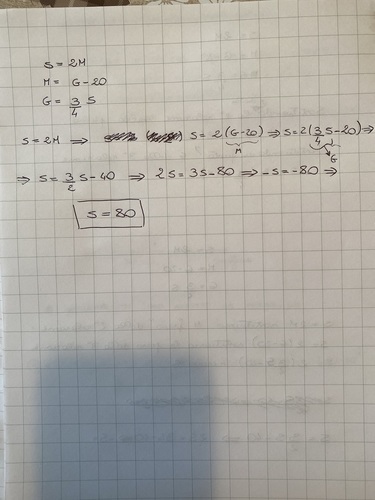 S = 2M
M = G - 20
G = 3/4 S
S = 2M ⇒ S = 2(G-20) ⇒ S = 2(3/4 S - 20) ⇒
M G
⇒ S = 3/2 S - 40 ⇒ 2S = 3S - 80 ⇒ -S = -80 ⇒
S = 80